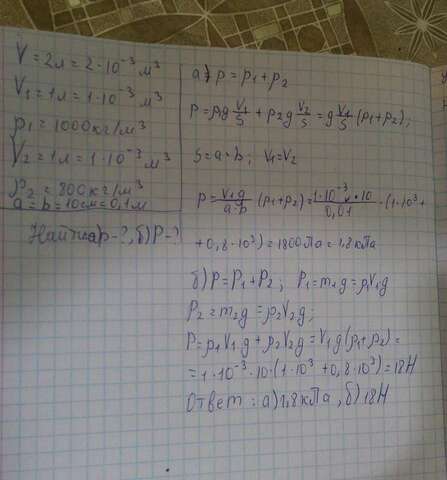 V = 2л = 2·10⁻³ м³
V₁ = 1л = 1·10⁻³ м³
ρ₁ = 1000 кг/м³
V₂ = 1л = 1·10⁻³ м³
ρ₂ = 800 кг/м³
a = b = 10см = 0,1м
Найти: а) p-?, б) P-?
а) p = p₁ + p₂
p = ρ₁g V₁/S + ρ₂g V₂/S = g V₁/S (ρ₁+ρ₂);
S = a·b; V₁=V₂
p = V₁g/a·b (ρ₁+ρ₂) = 1·10⁻³·10/0,01 · (1·10³+
+0,8·10³) = 1800 Па = 1,8 кПа
б) P = P₁ + P₂; P₁ = m₁g = ρ₁V₁g
P₂ = m₂g = ρ₂V₂g;
P = ρ₁V₁g + ρ₂V₂g = V₁g(ρ₁+ρ₂) =
= 1·10⁻³·10·(1·10³+0,8·10³) = 18Н
Ответ: а) 1,8 кПа, б) 18Н